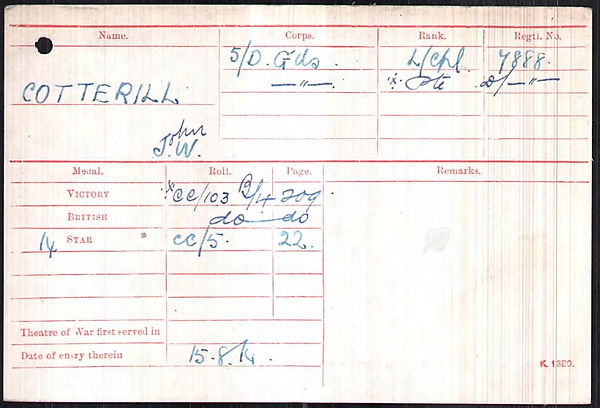 Name. Corps. Rank. Regtl. No.
5/D. Gds. L/Cpl 7888.
COTTERILL —"— * Pte D/—"—
John
J.W.
Medal. Roll. Page. Remarks.
VICTORY *CC/103 B/4 209
BRITISH do do
14 STAR CC/5. 22.
Theatre of War first served in
Date of entry therein 15.8.14.
K. 1380.